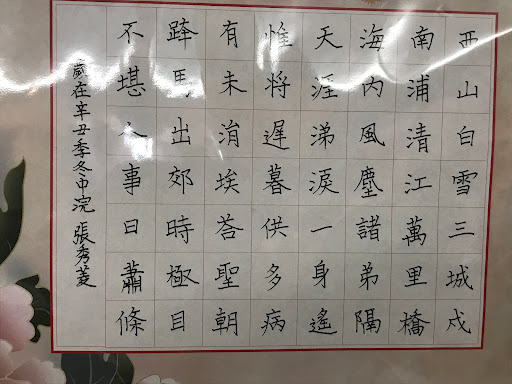 西山白雪三城戍
南浦清江萬里橋
海内風塵諸弟隔
天涯涕淚一身遙
惟将遲暮供多病
有未涓埃荅聖朝
跨馬出郊時極目
不堪人事日蕭條
歲在辛丑季冬中浣 張秀菱